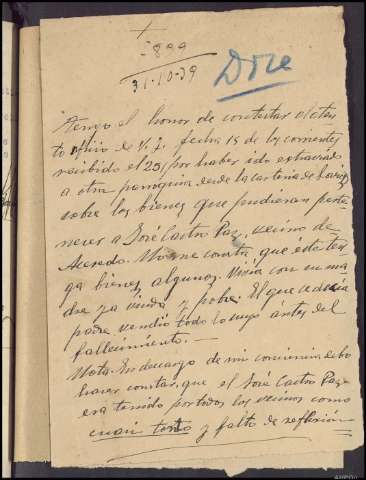 +
5899
31-10-39
Doze
Tengo el honor de contestar al aten-
to oficio de V. J. fecha 15 de los corrientes
recibido el 25 (por haber ido extraviado
a otra parroquia desde la cartería de
sobre los bienes que pudieran perte-
necer a José Castro Paz, vecino de
Acevedo. No me consta que éste ten-
ga bienes algunos. Vivía con su ma-
dre ya viuda y pobre. El que
padre vendió todo lo suyo antes del
fallecimiento.—
Nota. En descargo de mi conciencia debo
hacer constar, que el José Castro Paz
era tenido por todos los vecinos como
cuasi tonto y falto de reflexión